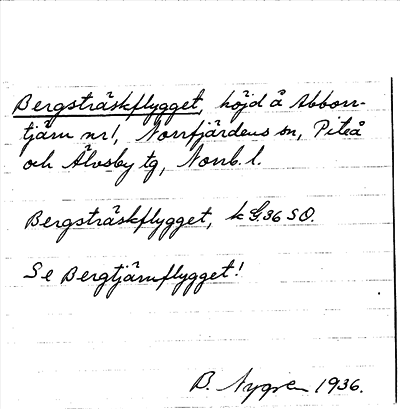 Bergsträskflygget, höjd å Abborr-
tjärn nr 1, Norrfjärdens sn, Piteå
och Älvsby tg, Norrb. l.
Bergsträskflygget, k G 36 SO.
Se Bergtjärnflygget!
B. Nygren 1936.